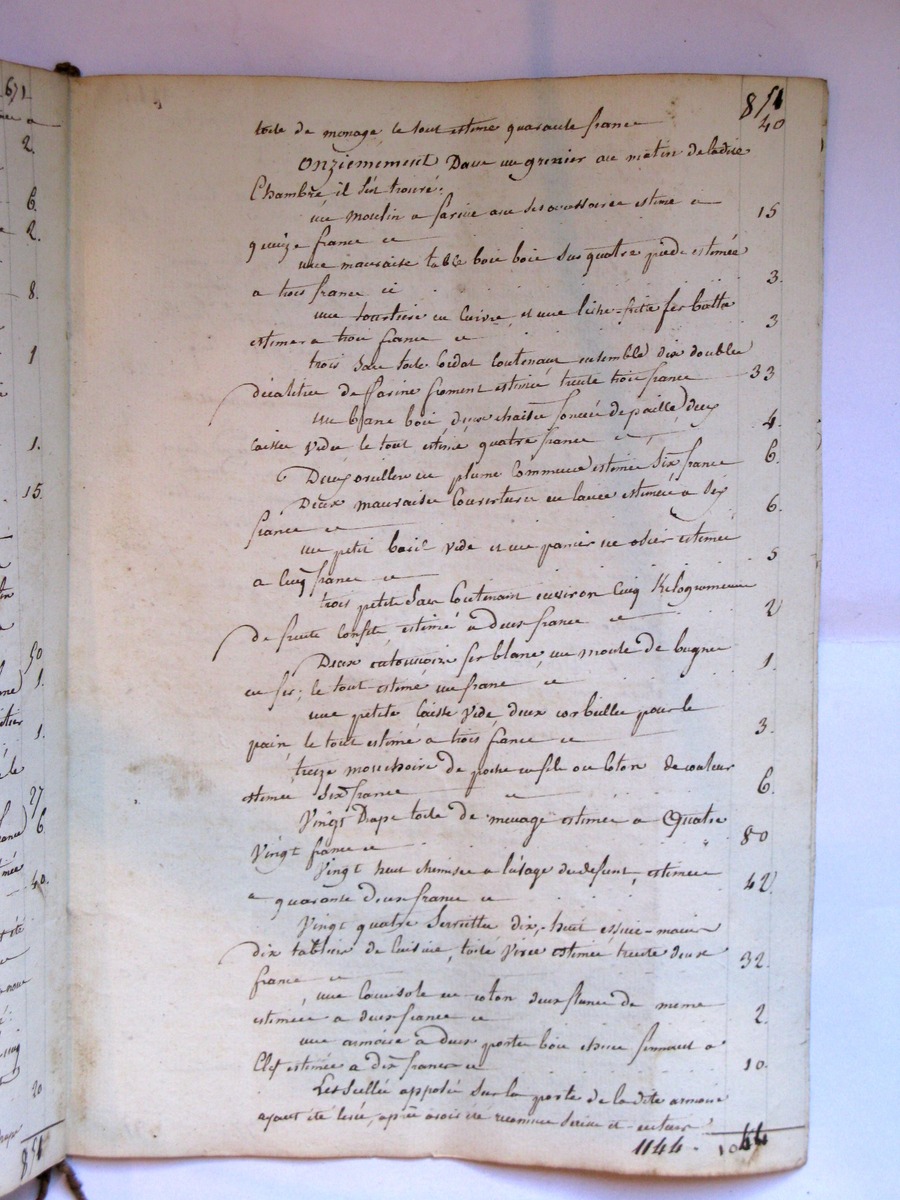 851
toile de menage, le tout estimé quarante francs 40
Onziemement Dans un grenier au matin de ladite
Chambre, il s'est trouvé:
un moulin a farine avec ses accessoires estimé a
quinze francs ci 15
une mauvaise table bois sur quatre pieds estimée
a trois francs ci 3.
une tourtiere en cuivre, et une liche-frite fer battu
estimés a trois francs ci 3
trois sacs toile contenant ensemble dix doubles
décalitres de farine froment estimés trente trois francs 33
un banc bois, deux chaises foncées de paille, deux
caisses vides le tout estimé quatre francs ci 4.
Deux oreillers en plume commune estimés six francs 6.
Deux mauvaises couvertures en laine estimées a six
francs ci 6.
un petit baril vide et un panier en osier estimés
a cinq francs ci 5
trois petits sacs contenant environ cinq Kilogrammes
de fruits confits, estimés a deux francs ci 2
Deux entonnoirs fer blanc, un moule de bugnes
en fer; le tout estimé un franc ci 1.
une petite caisse vide, deux corbeilles pour le
pain, le tout estimé a trois francs ci 3.
treize mouchoirs de poche en fil ou coton de couleur
estimés six francs ci 6.
Vingt Draps toile de menage estimés a Quatre
Vingt francs ci 80
Vingt huit chemises a l'usage du defunt, estimées
a quarante deux francs ci 42
Vingt quatre serviettes dix-huit essuie-mains
dix tabliers de cuisine, toile estimés trente deux
francs ci 32.
une camisole en coton deux de meme
estimées a deux francs ci 2.
une armoire a deux portes bois fermant a
Clef estimée a dix francs ci 10.
Les Scellés apposés sur la porte de ladite armoire
ayant été levés, après avoir été reconnus sains et entiers
1144 - 1044
671
2.
6.
2.
8.
1
1.
15.
50
1.
1.
27
6.
40.
20
851